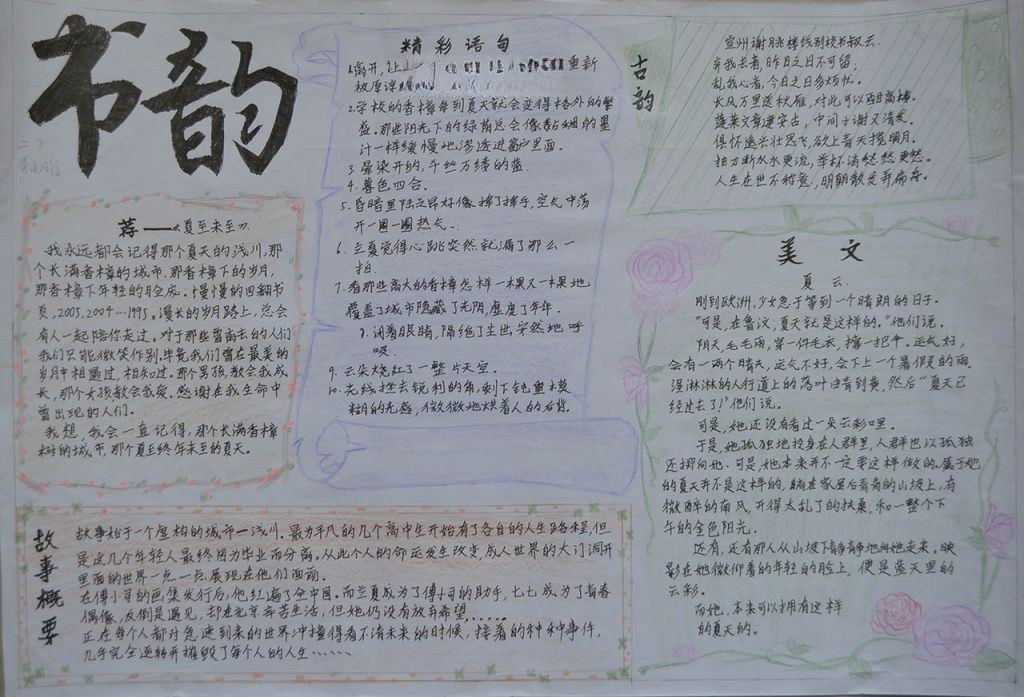 书韵
二7
荐——《夏至未至》
我永远都会记得那个夏天的浅川,那
个长满香樟的城市,那香樟下的岁月,
那香樟下年轻的脸庞。慢慢的回翻书
页,2005,2004…1995。漫长的岁月路上,总会
有人一起陪你走过。对于那些曾离去的人们
我们只能微笑作别。毕竟我们曾在最美的
岁月中相遇过,相知过。那个男孩,教会我成
长,那个女孩教会我爱。感谢在我生命中
曾出现的人们。
我想,我会一直记得,那个长满香樟
树的城市,那个夏至终年未至的夏天。
精彩语句
1.离开,让 重新
被原谅
2.学校的香樟每到夏天就会变得格外的繁
盛。那些阳光下的绿荫总会像黏稠的墨
汁一样缓慢地渗透进窗户里面。
3.晕染开的,千丝万缕的蓝
4.暮色四合。
5.昏暗里陆之昂好像挥了挥手,空气中荡
开一圈一圈热气。
6.立夏觉得心跳突然就漏了那么一
拍。
7.看那些高大的香樟怎样一棵又一棵地
覆盖了城市隐藏了光阴,虚度了年年。
8.闭着眼睛,隔绝了尘世安然地呼
吸。
9.云朵烧红了一整片天空。
10.光线挫去锐利的角,剩下钝重模
糊的光感,微微地烘着人的后背。
故事概要
故事始于一个虚构的城市—浅川。最为平凡的几个高中生开始有了各自的人生路程,但
是这几个年轻人最终因为毕业而分离。从此个人的命运发生改变,成人世界的大门洞开
里面的世界一点一点展现在他们面前。
在傅小司的画集发行后,他红遍了全中国。而立夏成为了傅小司的助手,七七成为了青春
偶像,反倒是遇见,却在北京辛苦生活,但她仍没有放弃希望,……
正在每个人都对急速到来的世界冲撞得看不清未来的时候,接着的种种事件,
几乎完全逆转并摧毁了每个人的人生……
古韵
宣州谢朓楼饯别校书叔云
弃我去者,昨日之日不可留;
乱我心者,今日之日多烦忧。
长风万里送秋雁,对此可以酣高楼。
蓬莱文章建安古,中间小谢又清发。
俱怀逸兴壮思飞,欲上青天揽明月。
抽刀断水水更流,举杯消愁愁更愁。
人生在世不称意,明朝散发弄扁舟。
美文
夏云
刚到欧洲,少女急于等到一个晴朗的日子。
“可是,在鲁汶,夏天就是这样的。”他们说。
阴天,毛毛雨,穿一件毛衣,撑一把伞。运气好,
会有一两个晴天,运气不好,会下上一个暑假的雨
湿淋淋的人行道上的落叶由青到黄,然后“夏天已
经过去了!”他们说。
可是,她还没有看过一朵云彩哩。
于是,她孤独地投身在人群里,人群也以孤独
还掷向她。可是,她本来并不一定要这样做的。属于她
的夏天并不是这样的,躺在家屋后青青的山坡上,有
微醉的南风,开得太乱了的扶桑,和一整个下
午的金色阳光。
还有,还有那人从山坡下静静地向她走来。映
影在她微仰着的年轻的脸上,便是蓝天里的
云彩。
而她,本来可以拥有这样
的夏天的。